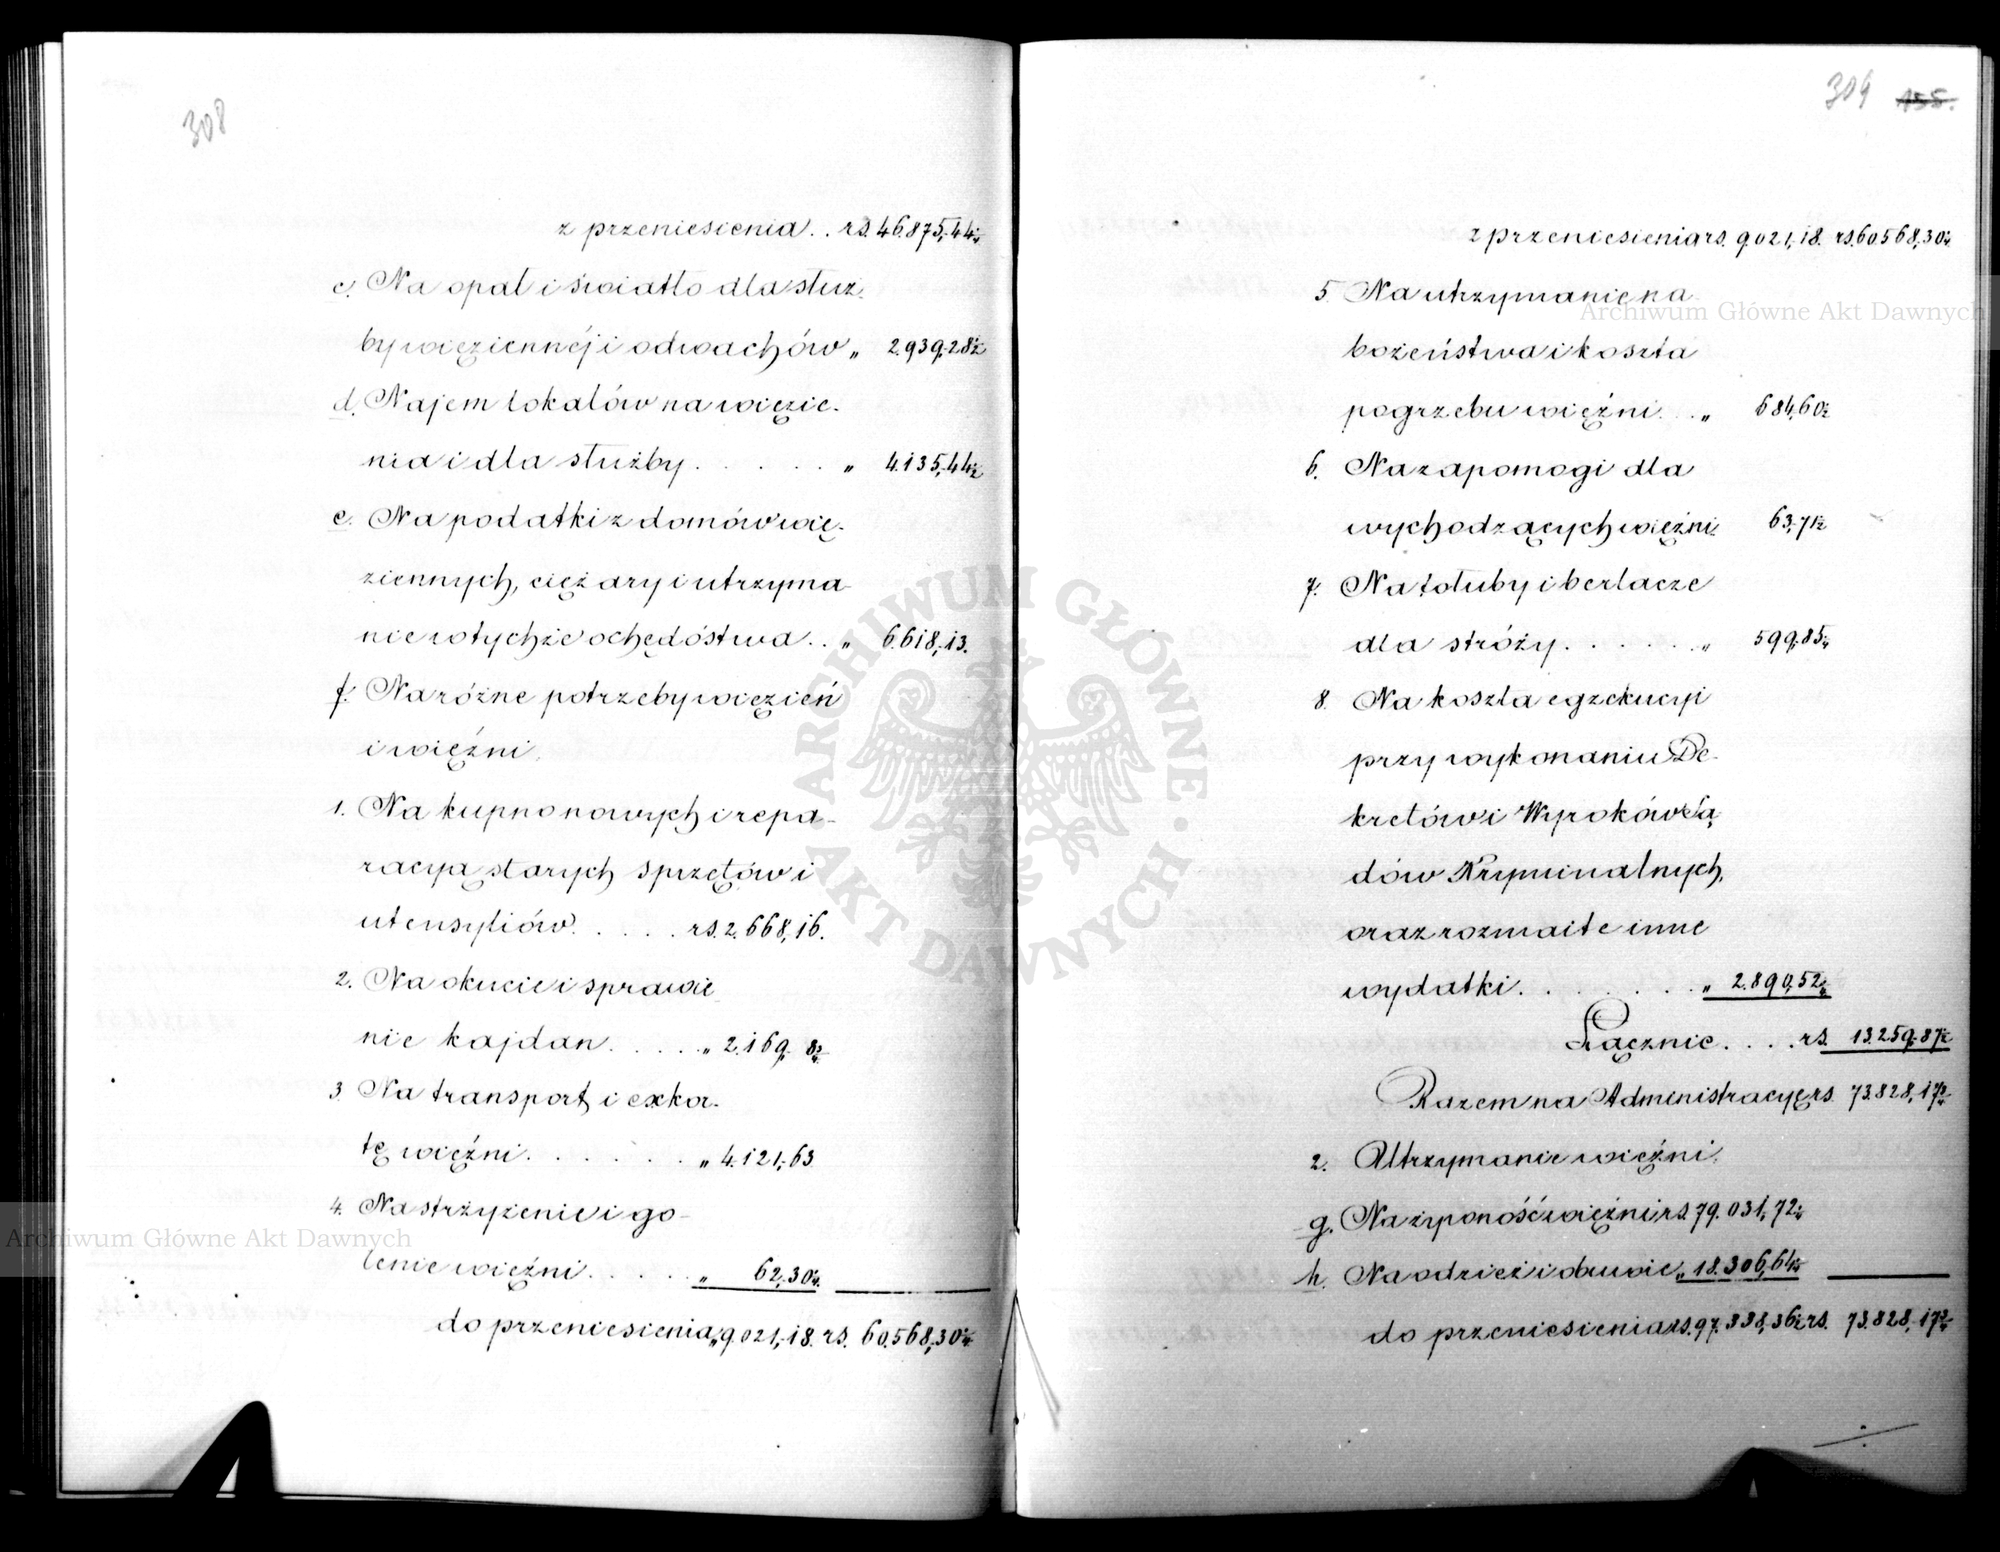 308
z przeniesienia . . rs. 46.875,44¼
c. Na opał i światło dla służ-
by więziennéj i odwachów „ 2.939,28½
d. Najem lokalów na więzie-
nia i dla służby . . . . . . „ 4.135,44½
e. Na podatki z domów wię-
ziennych, ciężary i utrzyma-
nie w tychże ochędóstwa . . „ 6.618,13.
f. Na różne potrzeby więzień
i więźni.
1. Na kupno nowych i repa-
racyą starych sprzętów i
utensyliów . . . . . rs. 2.668,16.
2. Na okucie i sprawie
nie kajdan . . . . . „ 2.169, 8¾
3. Na transport i exkor-
tę więźni . . . . . . . „ 4.121,63
4. Na strzyżenie i go-
lenie więźni . . . . . „ 62,30¼.
do przeniesienia „ 9.021,18. rs. 60.568,30¼
309 155.
z przeniesienia rs. 9.021,18. rs. 60.568,30¼
5. Na utrzymanie na-
bożeństwa i koszta
pogrzebu więźni . . „ 684,60½
6. Na zapomogi dla
wychodzących więźni 63,71½
7. Na tołuby i berlacze
dla stróży . . . . . . „ 599,85¼
8. Na koszta egzekucyi
przy wykonaniu De-
kretów i Wyroków Są
dów Kryminalnych,
oraz rozmaite inne
wydatki . . . . . . . „ 2.890,52¼
Łącznie . . . . rs. 13.259,87½
Razem na Administracyę rs. 73.828,17¾
2. Utrzymanie więźni.
g. Na żywność więźni rs. 79.031,72¼
h. Na odzież i obuwie „ 18.306,64¼
do przeniesienia rs. 97.338,36½ rs. 73.828,17¾
Archiwum Główne Akt Dawnych
ARCHIWUM GŁÓWNE • AKT DAWNYCH •
Archiwum Główne Akt Dawnych